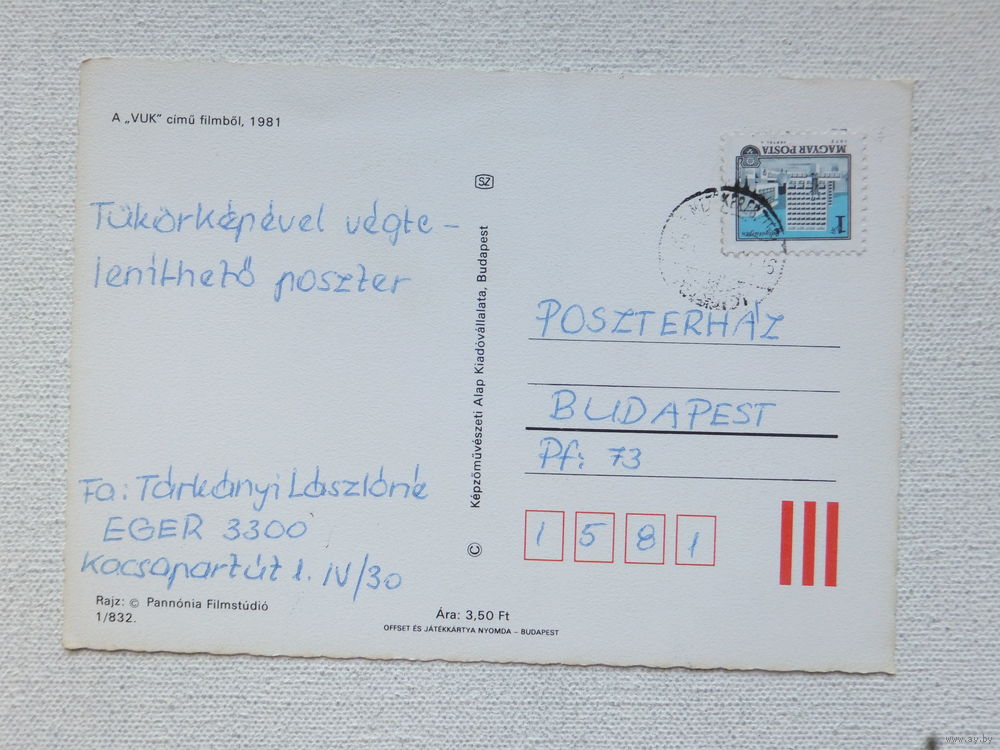 A „VUK” című filmből, 1981
Tükörképével végte-
leníthető poszter
Fa: Tárkányi Lászlóné
EGER 3300
Kocsapart út 1. IV/30
Rajz: © Pannónia Filmstúdió
1/832.
SZ
© Képzőművészeti Alap Kiadóvállalata, Budapest
Ára: 3,50 Ft
OFFSET ÉS JÁTÉKKÁRTYA NYOMDA – BUDAPEST
MAGYAR POSTA
1Ft
POSZTERHÁZ
BUDAPEST
Pf: 73
1 5 8 1
www.ay.by